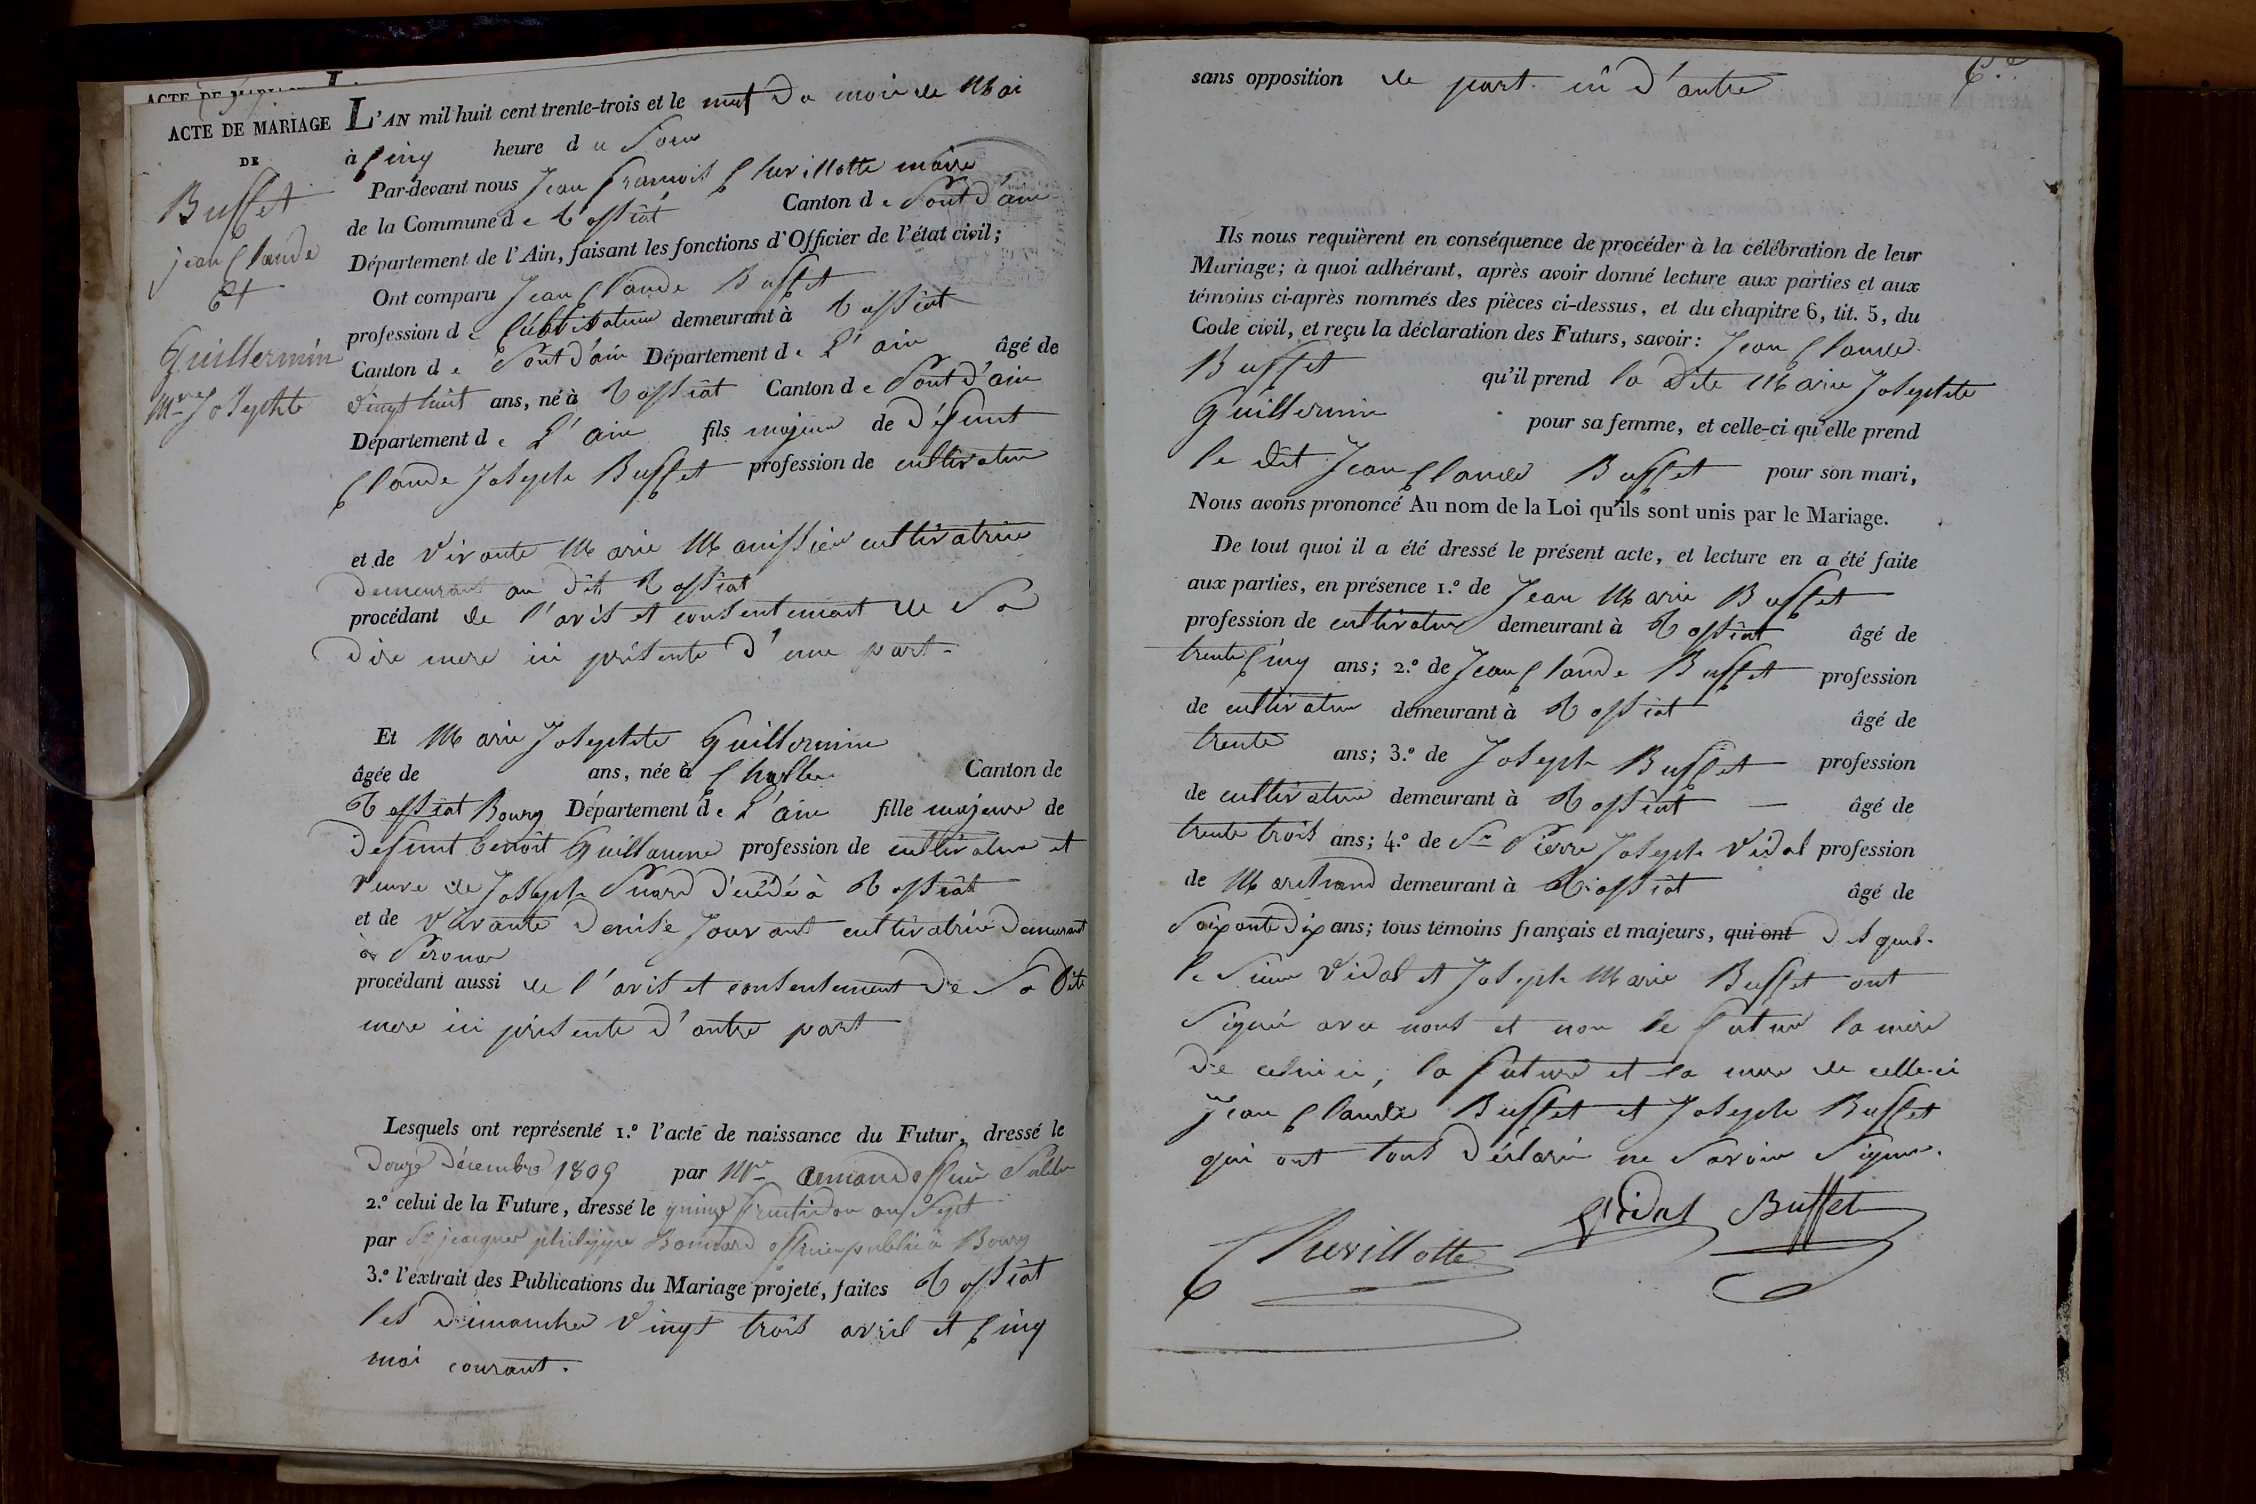 ACTE DE MARIAGE
DE
Buffet
jean Claude
Et
Guillermin
Mie Josephte
L'AN mil huit cent trente-trois et le neuf du mois de Mai
à Cinq heure du Soir
Par-devant nous Jean François Chevillotte maire
de la Commune de Rossiat Canton de Pont d'ain
Département de l'Ain, faisant les fonctions d'Officier de l'état civil;
Ont comparu Jean Claude Buffet
profession de Cultivateur demeurant à Rossiat
Canton de Pont d'ain Département de L'ain âgé de
vingt huit ans, né à Rossiat Canton de Pont d'ain
Département de L'ain fils majeur de défunt
Claude Joseph Buffet profession de cultivateur
et de vivante Marie Manissier cultivatrice
demeurant au dit Rossiat
procédant de l'avis et consentement de Sa
dite mere ici présente d'une part-
Et Marie Josephte Guillermin
âgée de ans, née à Canton de
Rossiat Bourg Département de L'ain fille majeure de
defunt benoit Guillaume profession de cultivateur et
veuve de Joseph décédé à Rossiat
et de vivante denise cultivatrice demeurant
à
procédant aussi de l'avis et consentement de Sa dite
mere ici présente d'autre part
Lesquels ont représenté 1.º l'acte de naissance du Futur, dressé le
douze décembre 1809 par Mre
2.º celui de la Future, dressé le quinze fructidor an Sept
par Sr jacques philippe officier public à Bourg
3.º l'extrait des Publications du Mariage projeté, faites Rossiat
les dimanches vingt trois avril et Cinq
mai courant.
6.e
sans opposition de part ni d'autre
Ils nous requièrent en conséquence de procéder à la célébration de leur
Mariage; à quoi adhérant, après avoir donné lecture aux parties et aux
témoins ci-après nommés des pièces ci-dessus, et du chapitre 6, tit. 5, du
Code civil, et reçu la déclaration des Futurs, savoir: Jean Claude
Buffet qu'il prend la dite Marie Josephte
Guillermin pour sa femme, et celle-ci qu'elle prend
le dit Jean Claude Buffet pour son mari,
Nous avons prononcé Au nom de la Loi qu'ils sont unis par le Mariage.
De tout quoi il a été dressé le présent acte, et lecture en a été faite
aux parties, en présence 1.º de Jean Marie Buffet
profession de cultivateur demeurant à Rossiat âgé de
trente Cinq ans; 2.º de Jean Claude Buffet profession
de cultivateur demeurant à Rossiat âgé de
trente ans; 3.º de Joseph Buffet profession
de cultivateur demeurant à Rossiat — âgé de
trente trois ans; 4.º de Sr Pierre Joseph Vidal profession
de Marchand demeurant à Rossiat âgé de
Soixante dix ans; tous témoins français et majeurs, qui ont desquels
le Sieur Vidal et Joseph Marie Buffet ont
Signé avec nous et non le futur la mère
de celui ci, la future et la mere de celle-ci
Jean Claude Buffet et Joseph Buffet
qui ont tous déclaré ne Savoir Signer.
Vidal Buffet
Chevillotte